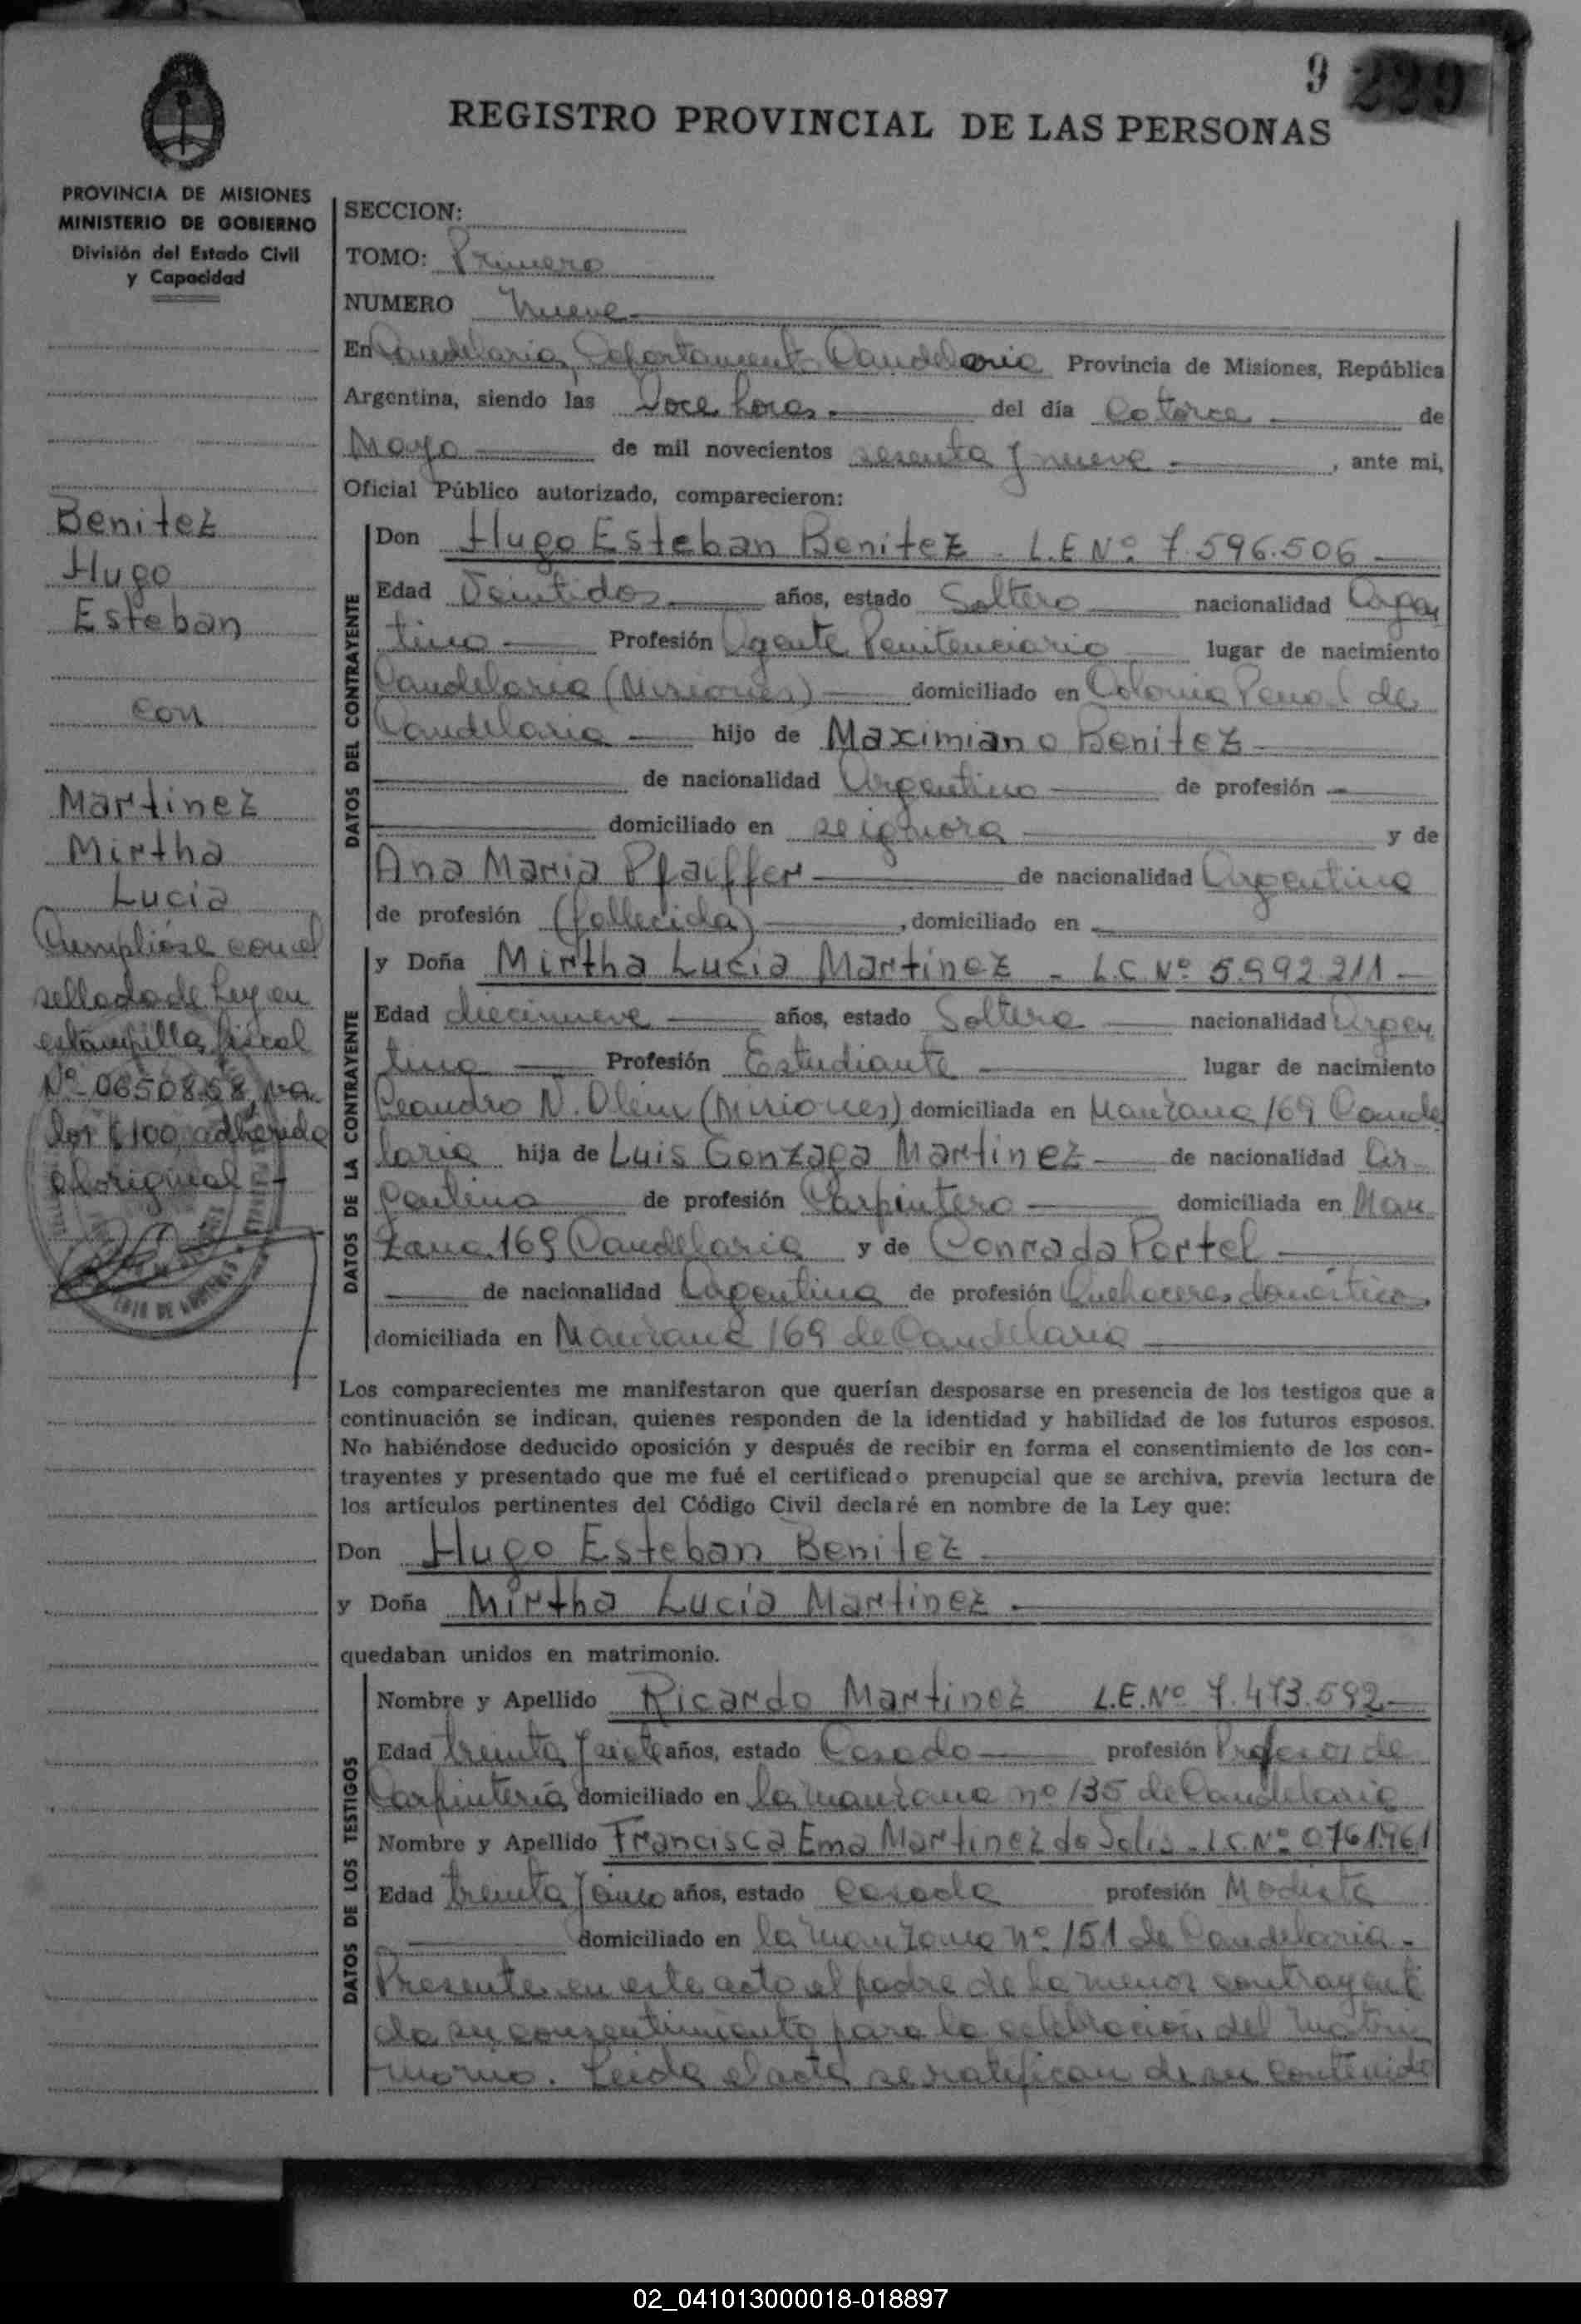 9 229
REGISTRO PROVINCIAL DE LAS PERSONAS
PROVINCIA DE MISIONES
MINISTERIO DE GOBIERNO
División del Estado Civil
y Capacidad
SECCION:
TOMO: Primero
NUMERO Nueve
En Candelaria, Departamento Candelaria Provincia de Misiones, República
Argentina, siendo las Doce horas. del día Catorce de
Mayo de mil novecientos sesenta y nueve , ante mi,
Oficial Público autorizado, comparecieron:
Benitez
Hugo
Esteban
con
Martinez
Mirtha
Lucia
Cumplióse con el
sellado de Ley en
estampilla fiscal
Nº 0650868, va
lor $ 100, adherida
al original
DATOS DEL CONTRAYENTE
Don Hugo Esteban Benitez - L.E Nº 7.596.506
Edad Veintidos años, estado Soltero nacionalidad Argen
tino Profesión Agente Penitenciario lugar de nacimiento
Candelaria (Misiones) domiciliado en Colonia Penal de
Candelaria hijo de Maximiano Benitez
de nacionalidad Argentino de profesión
domiciliado en se ignora y de
Ana Maria Pfaiffer de nacionalidad Argentina
de profesión (fallecida) , domiciliado en
DATOS DE LA CONTRAYENTE
y Doña Mirtha Lucia Martinez - L.C Nº 5.992.211
Edad diecinueve años, estado Soltera nacionalidad Argen
tina Profesión Estudiante lugar de nacimiento
Leandro N. Alem (Misiones) domiciliada en Manzana 169 Cande
laria hija de Luis Gonzaga Martinez de nacionalidad Ar
gentino de profesión Carpintero domiciliada en Man
zana 169 Candelaria y de Conrada Portel
de nacionalidad Argentina de profesión Quehaceres domésticos.
domiciliada en Manzana 169 de Candelaria
Los comparecientes me manifestaron que querían desposarse en presencia de los testigos que a
continuación se indican, quienes responden de la identidad y habilidad de los futuros esposos.
No habiéndose deducido oposición y después de recibir en forma el consentimiento de los con-
trayentes y presentado que me fué el certificado prenupcial que se archiva, previa lectura de
los artículos pertinentes del Código Civil declaré en nombre de la Ley que:
Don Hugo Esteban Benitez
y Doña Mirtha Lucia Martinez
quedaban unidos en matrimonio.
DATOS DE LOS TESTIGOS
Nombre y Apellido Ricardo Martinez L.E.Nº 7.473.592
Edad treinta y siete años, estado Casado profesión Profesor de
Carpintería domiciliado en la manzana nº 135 de Candelaria
Nombre y Apellido Francisca Ema Martinez de Solis - L.C.Nº 0.761.961
Edad treinta y cinco años, estado Casada profesión Modista
domiciliado en la manzana nº 151 de Candelaria.
Presente en este acto el padre de la menor contrayente
da su consentimiento para la celebración del matri
monio. Leida el acta se ratifican de su contenido
02_041013000018-018897